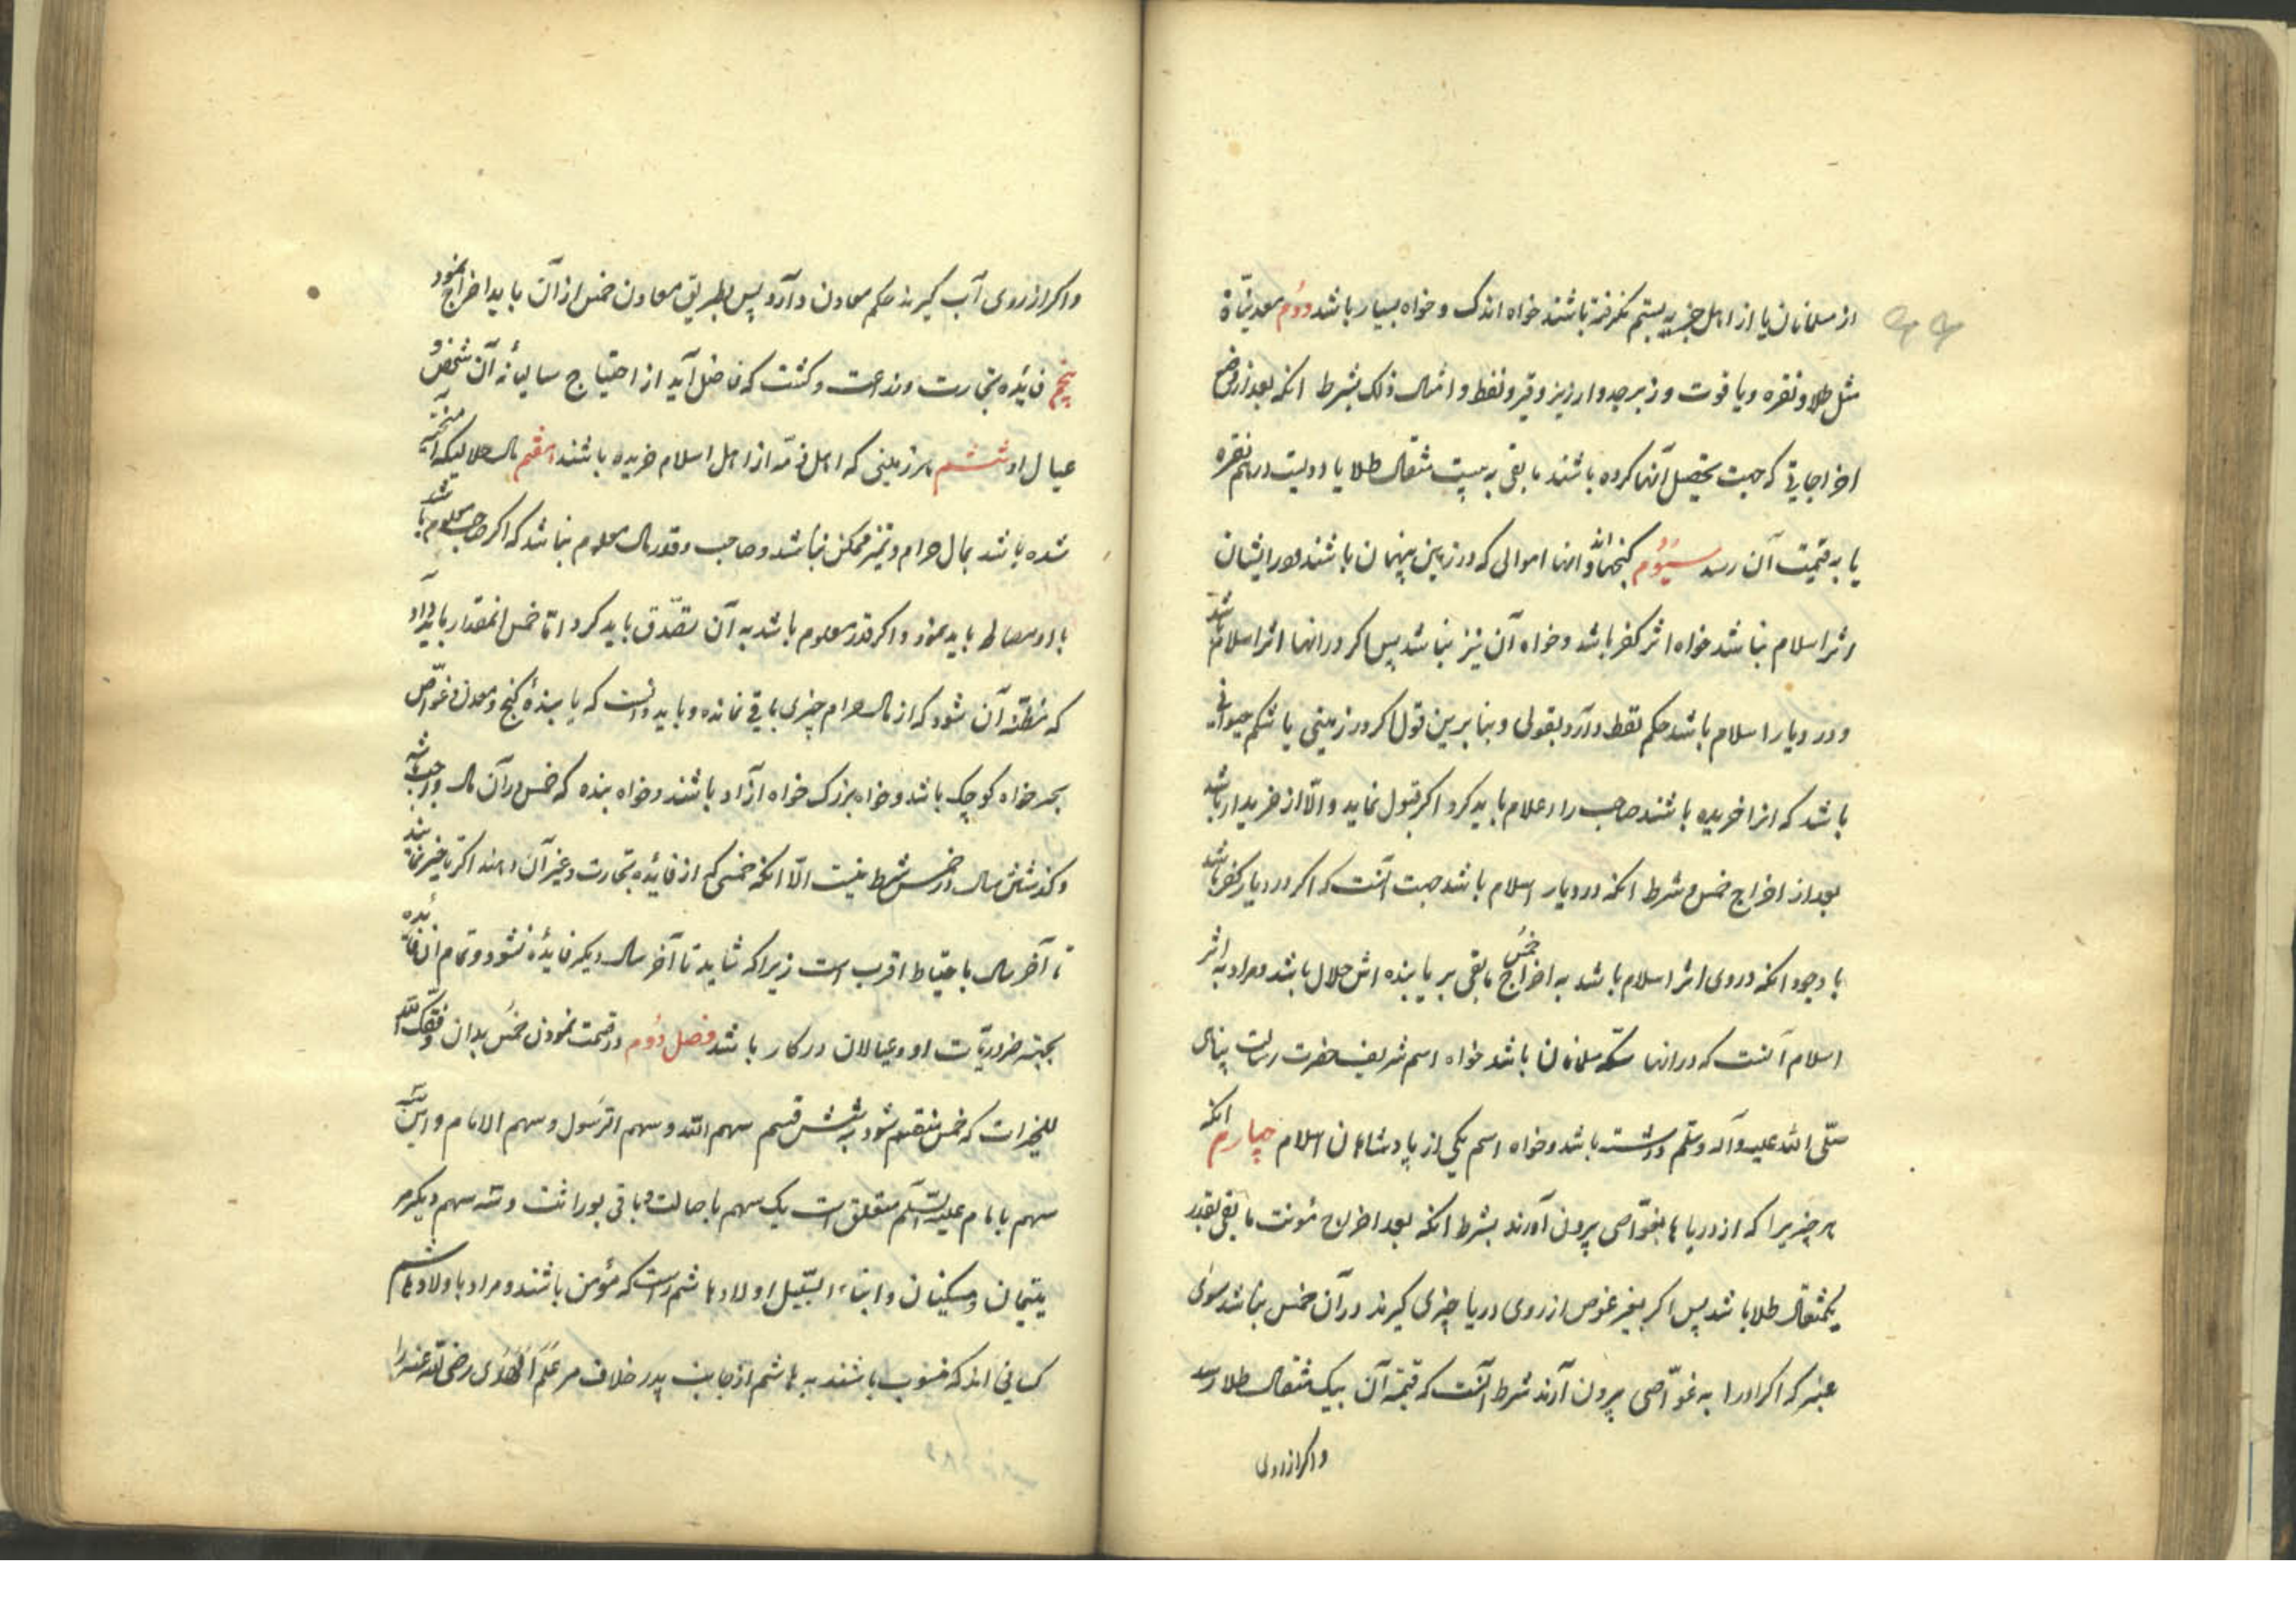 از مسلمانان یا از اهل جزیه بستم نکرفته باشند خواه اندک و خواه بسیار باشد دوم معدنیّاة
مثل طلا و نقره و یاقوت و زبرجد و ارزیز و قیر و نفط و امثال ذلک بشرط انکه بعد از وضع
اخراجاتی که جهت تحصیل آنها کرده باشند مابقی به بیست مثقال طلا یا دویست درهم نقره
یا به قیمت آن رسد سیوم کنجها و انها اموالی که در زمین پنهان باشند و در ایشان
اثر اسلام نباشد خواه اثر کفر باشد و خواه آن نیز نباشد پس اکر در انها اثر اسلام باشد
و در دیار اسلام باشد حکم لقط دارد بقولی و بنا برین قول اکر در زمینی یا شکم حیوانی
باشد که انرا خریده باشند صاحب را اعلام باید کرد اکر قبول نماید و الّا از خریدار باشد
بعد از اخراج خمس و شرط انکه در دیار اسلام باشد جهت آنست که اکر در دیار کفر باشد
با وجود انکه در وی اثر اسلام باشد به اخراج خمس مابقی بر یابنده اش حلال باشد و مراد به اثر
اسلام آنست که در انها سکّه مسلمانان باشد خواه اسم شریف حضرت رسالت پناهی
صلّی الله علیه وآله وسلّم داشته باشد و خواه اسم یکی از پادشاهان اسلام چهارم انکه
هر چیزیرا که از دریاها بغوّاصی بیرون آورند بشرط انکه بعد اخراج مؤنت مابقی بقدر
یکمثقال طلا باشد پس اکر بغیر غوص از روی دریا چیزی کیرند در آن خمس نباشد سوی
عنبر که اکر او را به غوّاصی بیرون آرند شرط آنست که قیمة آن بیک مثقال طلا رسد
و اکر از روی
و اکر از روی آب کیرند حکم معادن دارد پس بطریق معادن خمس از آن باید اخراج نمود
پنجم فائده تجارت و زراعت و کشت که فاضل آید از احتیاج سالیانه آن شخص و
عیال او ششم هر زمینی که اهل ذمّه از اهل اسلام خریده باشند هفتم مال حلالیکه آمیخته
شده باشد بمال حرام و تمیز ممکن نباشد و صاحب و قدر مال معلوم نباشد که اکر صاحب معلوم باشد
با او مصالحه باید نمود و اکر قدر معلوم باشد به آن تصدّق باید کرد امّا خمس انمقدار باید داد
که مظنّه آن شود که از مال حرام چیزی باقی نمانده و باید دانست که یابندهٔ کنج و معدن و غوّاص
بحر خواه کوچک باشد و خواه بزرک خواه آزاد باشند و خواه بنده که خمس در آن مال واجب باشد
و کذشتن سال در خمس شرط نیست الّا انکه خمسی که از فائده تجارت و غیر آن دهند اکر تاخیر نمایند
تا آخر سال باحتیاط اقرب است زیرا که شاید تا آخر سال دیکر فایده نشود و تمام ان فائده
بجهة ضروریّات او و عیالان در کار باشد فصل دوم در قسمت نمودن خمس بدان وفّقک الله
للخیرات که خمس منقسم شود به شش قسم سهم الله و سهم الرّسول و سهم الامام و این سه
سهم بامام علیه السّلام متعلق است یک سهم باصالت و باقی بوراثت و سه سهم دیکر مر
یتیمان و مسکینان و ابناء السّبیل اولاد هاشم راست که مؤمن باشند و مراد باولاد هاشم
کسانی اند که منسوب باشند به هاشم از جانب پدر خلاف مر عَلَم الهُدی رضی الله عنه را